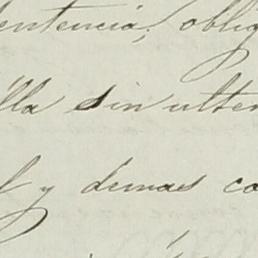 sentencia, oblig
lla sin ulter
l y demas co